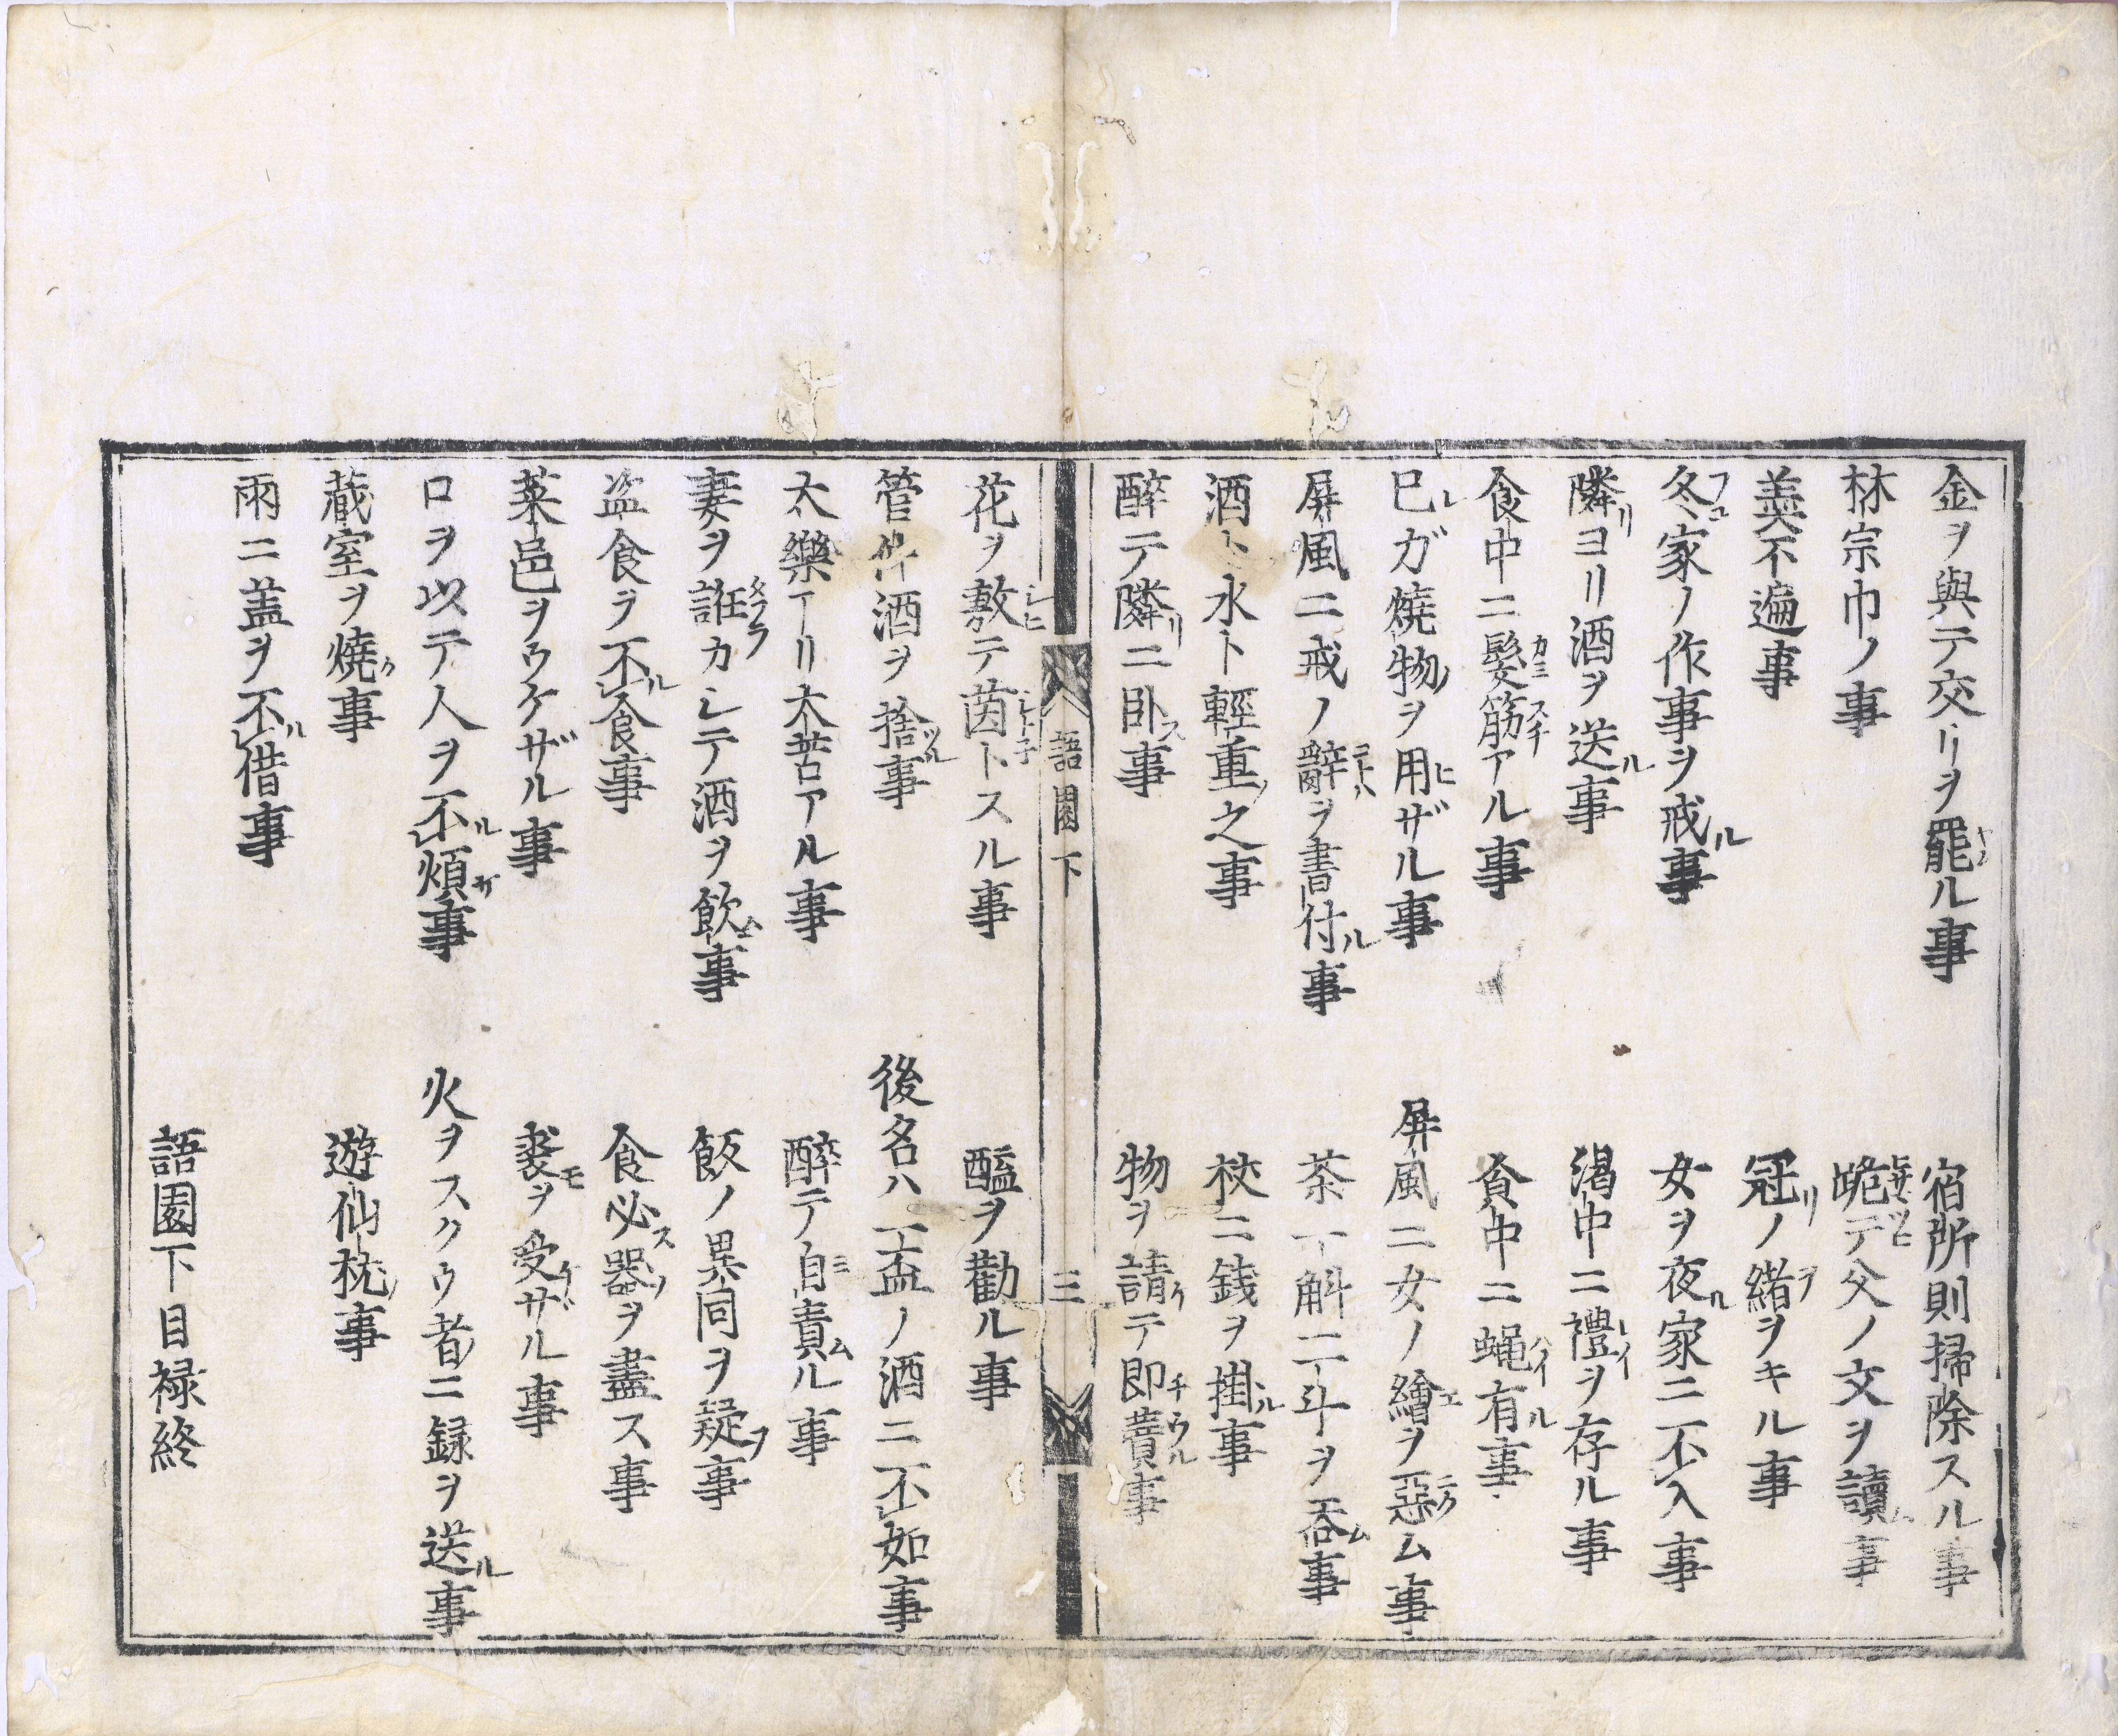 金ヲ與テ交リヲ罷ル事
宿所則掃除スル事
林宗巾ノ事
跪テ父ノ文ヲ讀事
羹不遍事
冠ノ緒ヲキル事
冬家ノ作事ヲ戒ル事
女ヲ夜ル家ニ不入事
隣リヨリ酒ヲ送ル事
渇中ニ禮ヲ存ル事
食中ニ髮筋アル事
食中ニ蝿有ル事
巳レガ燒物ヲ用ヒザル事
屏風ニ女ノ繪ヲ惡ム事
屏風ニ戒ノ辭ヲ書付ル事
茶一斛二斗ヲ呑ム事
酒ト水ト輕重之事
杖ニ銭ヲ掛ル事
醉テ隣リニ卧ス事
物ヲ請テ即事
語園下
三
花ヲ敷テ茵トスル事
醢ヲ勸ル事
管仲酒ヲ捨ツル事
後名ハ一盃ノ酒ニ不レ如事
太樂アリ太苦アル事
醉テ自ミ責ムル事
妻ヲ誑カシテ酒ヲ飲ム事
飯ノ異同ヲ疑フ事
盗食ヲ不ルレ食事
食必ス器ヲ盡ス事
菜邑ヲウケザル事
裘ヲモ受ケザル事
口ヲ以テ人ヲ不ルレ煩サ事
火ヲスクウ者ニ録ヲ送ル事
蔵室ヲ燒ク事
遊仙枕ノ事
雨ニ蓋ヲ不ルレ借事
語園下目禄終